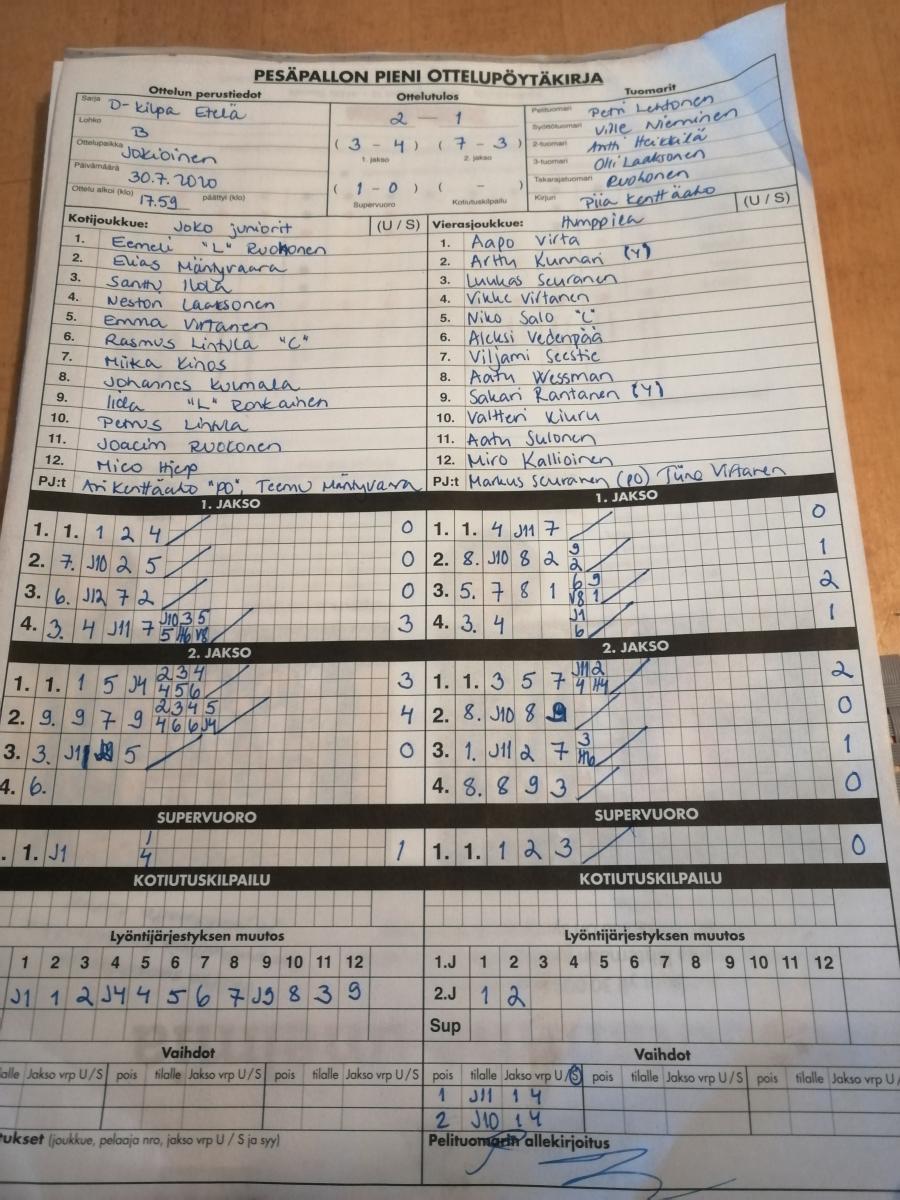 PESÄPALLON PIENI OTTELUPÖYTÄKIRJA
Ottelun perustiedot Ottelutulos Tuomarit
Sarja D-Kilpa Etelä
Lohko B
Ottelupaikka Jokioinen
Päivämäärä 30.7.2020
Ottelu alkoi (klo) 17.59 päättyi (klo)
2 — 1
( 3 - 4 ) ( 7 - 3 )
1. jakso 2. jakso
( 1 - 0 ) ( - )
Supervuoro Kotiutuskilpailu
Pelituomari Petri Lehtonen
Syöttötuomari Ville Nieminen
2-tuomari Antti Heikkilä
3-tuomari Olli Laaksonen
Takarajatuomari Ruohonen
Kirjuri Piia Kenttäaho
Kotijoukkue: Joko juniorit (U / S)
1. Eemeli "L" Ruohonen
2. Elias Mäntyvaara
3. Santtu Ilola
4. Neston Laaksonen
5. Emma Virtanen
6. Rasmus Lintula "C"
7. Miika Kinos
8. Johannes Kulmala
9. Iida "L" Ronkainen
10. Petrus Lintula
11. Joacim Ruokonen
12. Mico Hjerp
PJ:t Ari Kenttäaho "PO", Teemu Mäntyvaara
Vierasjoukkue: Humppila (U / S)
1. Aapo Virta
2. Arttu Kunnari (Y)
3. Luukas Seuranen
4. Vikke Virtanen
5. Niko Salo "C"
6. Aleksi Vedenpää
7. Viljami
8. Aatu Wessman
9. Sakari Rantanen (Y)
10. Valtteri Kiuru
11. Aatu Sulonen
12. Miro Kallioinen
PJ:t Markus Seuranen (PO) Tiina Virtanen
1. JAKSO
1. 1. 1 2 4 0
2. 7. J10 2 5 0
3. 6. J12 7 2 0
4. 3. 4 J11 7 J10 3 5 3
5 H6 V8
2. JAKSO
1. 1. 1 5 J4 2 3 4 3
4 5 6
2. 9. 9 7 9 2 3 4 5 4
4 6 6 J4
3. 3. J11 5 0
4. 6.
SUPERVUORO
. 1. J1 1 1
4
KOTIUTUSKILPAILU
Lyöntijärjestyksen muutos
1 2 3 4 5 6 7 8 9 10 11 12
J1 1 2 J4 4 5 6 7 J9 8 3 9
Vaihdot
alle Jakso vrp U / S pois tilalle Jakso vrp U / S pois tilalle Jakso vrp U / S
tukset (joukkue, pelaaja nro, jakso vrp U / S ja syy)
1. JAKSO
1. 1. 4 J11 7 0
2. 8. J10 8 2 9 1
2
3. 5. 7 8 1 6 9 2
V8 1
4. 3. 4 J1 1
6
2. JAKSO
1. 1. 3 5 7 J11 2 2
4 H4
2. 8. J10 8 9 0
3. 1. J11 2 7 3 1
H6
4. 8. 8 9 3 0
SUPERVUORO
1. 1. 1 2 3 0
KOTIUTUSKILPAILU
Lyöntijärjestyksen muutos
1.J 1 2 3 4 5 6 7 8 9 10 11 12
2.J 1 2
Sup
Vaihdot
pois tilalle Jakso vrp U/S pois tilalle Jakso vrp U / S pois tilalle Jakso vrp U /
1 J11 1 4
2 J10 1 4
Pelituomarin allekirjoitus